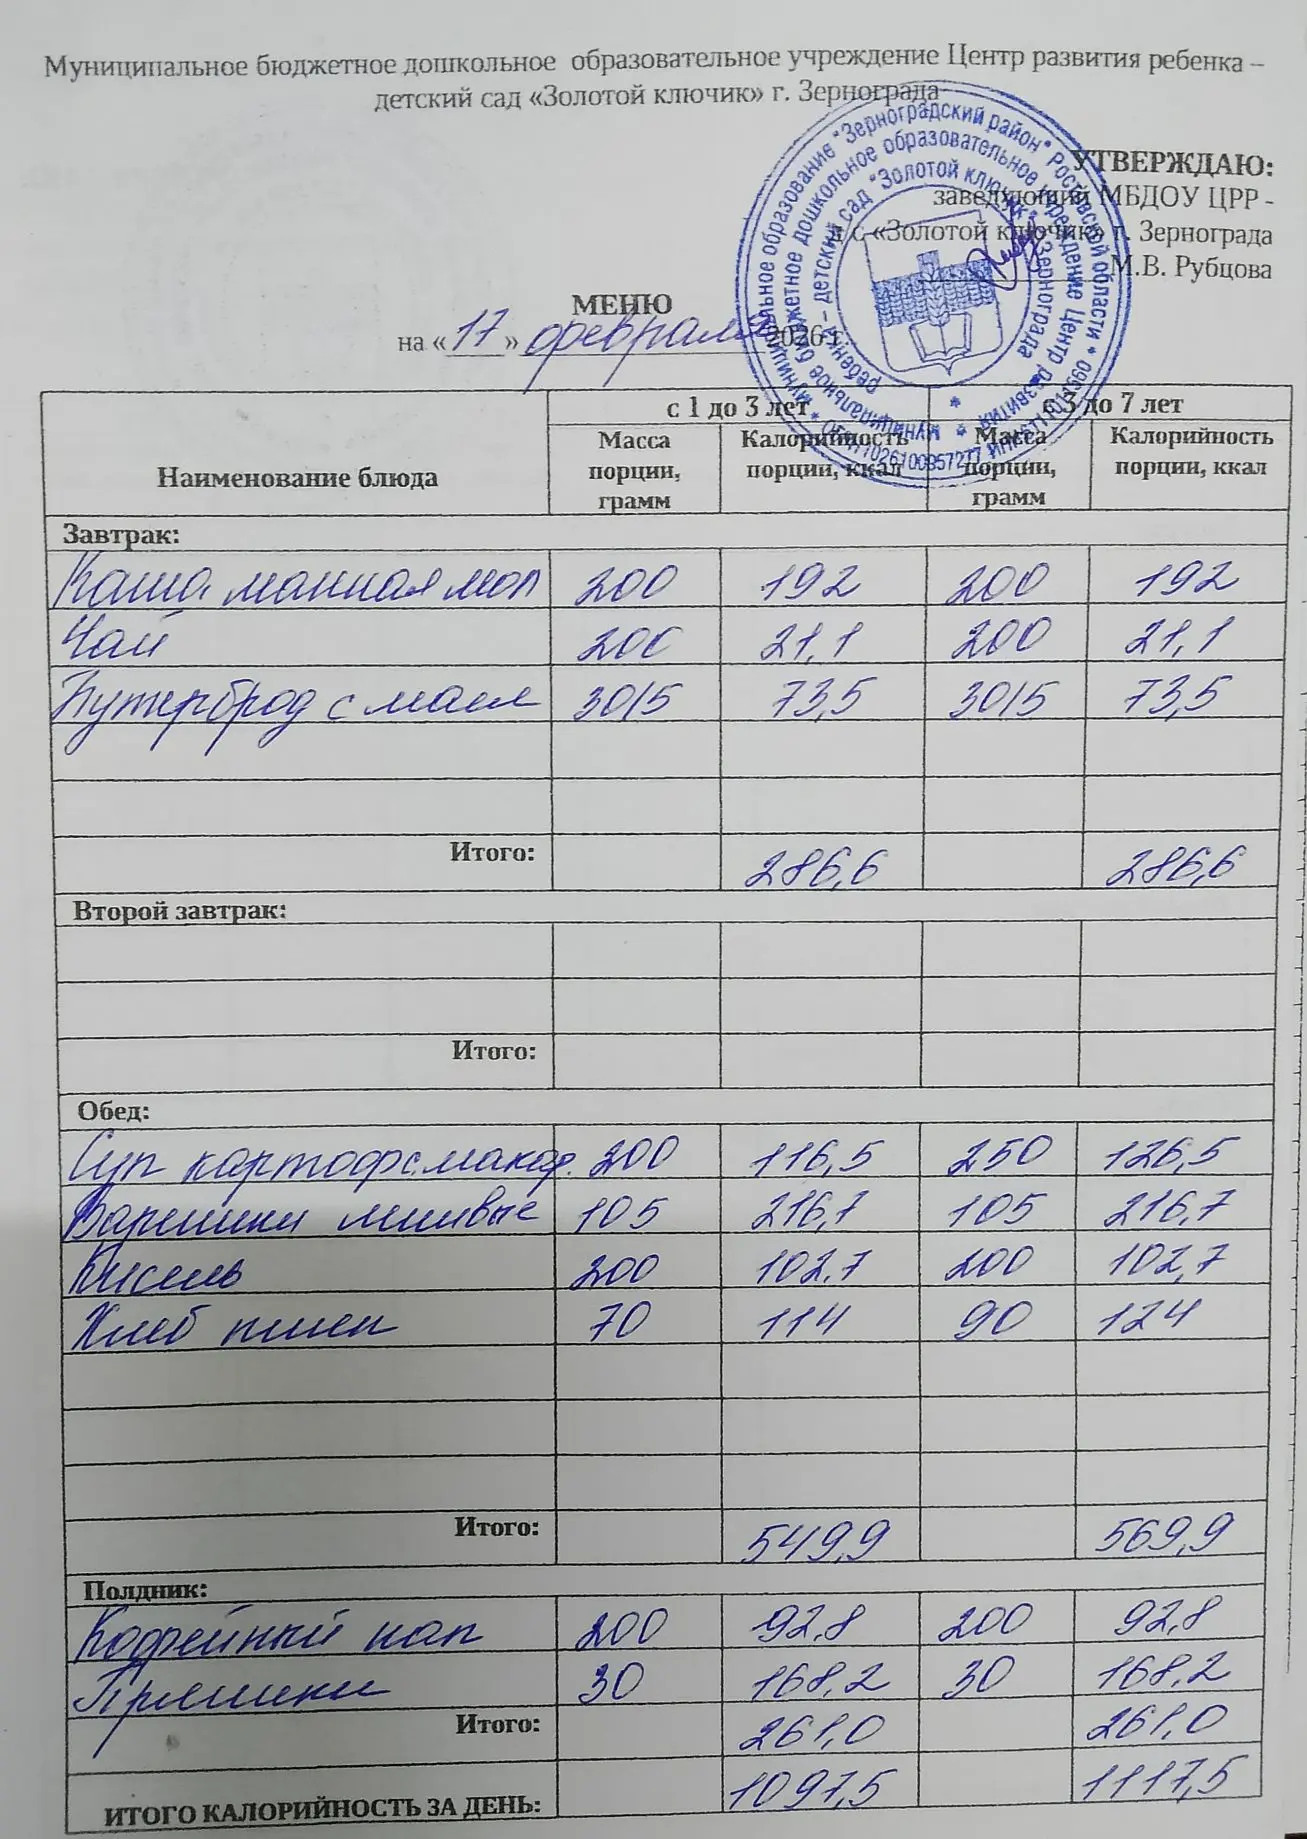 Муниципальное бюджетное дошкольное образовательное учреждение Центр развития ребенка –
детский сад «Золотой ключик» г. Зернограда
УТВЕРЖДАЮ:
заведующий МБДОУ ЦРР -
д/с «Золотой ключик» г. Зернограда
М.В. Рубцова
МЕНЮ
на «17» февраля 2026 г
Наименование блюда
с 1 до 3 лет с 3 до 7 лет
Масса порции, грамм Калорийность порции, ккал Масса порции, грамм Калорийность порции, ккал
Завтрак:
Каша манная мол 200 192 200 192
Чай 200 21,1 200 21,1
Бутерброд с масл 30/5 73,5 30/5 73,5
Итого: 286,6 286,6
Второй завтрак:
Итого:
Обед:
Суп картоф с макар. 200 116,5 250 126,5
Вареники ленивые 105 216,7 105 216,7
Кисель 200 102,7 200 102,7
Хлеб пшен 70 114 90 124
Итого: 549,9 569,9
Полдник:
Кофейный нап 200 92,8 200 92,8
Пряники 30 168,2 30 168,2
Итого: 261,0 261,0
ИТОГО КАЛОРИЙНОСТЬ ЗА ДЕНЬ: 1097,5 1117,5